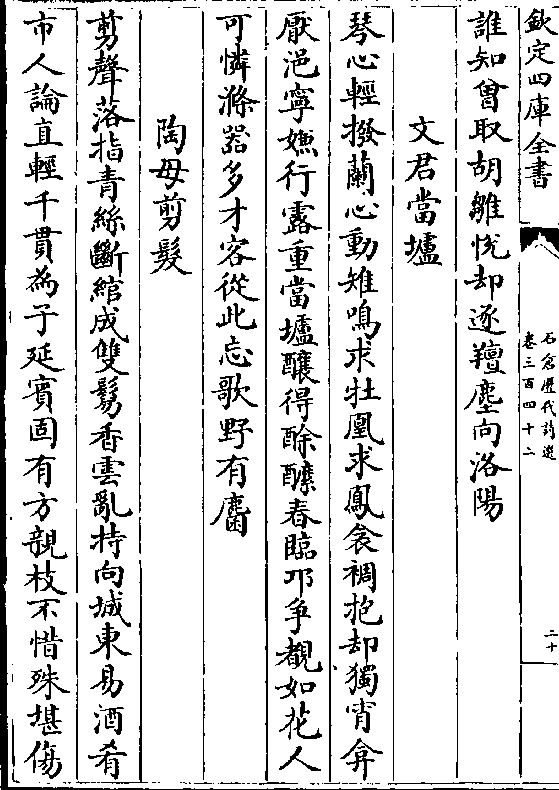 欽定四庫全書
石倉歷代詩選
卷三百四十二
二十
誰知曾取胡雛悅却逐羶塵向洛陽
文君當壚
琴心輕撥蘭心動雉鳴求牡凰求鳳衾裯抱却獨宵奔
厭浥寧嫌行露重當壚釀得酴醿春臨邛爭覩如花人
可憐滌器多才客從此忘歌野有麕
陶母剪髮
剪聲落指青絲斷綰成雙髢香雲亂持向城東易酒肴
市人論直輕千貫為子延賓固有方親枝不惜殊堪傷